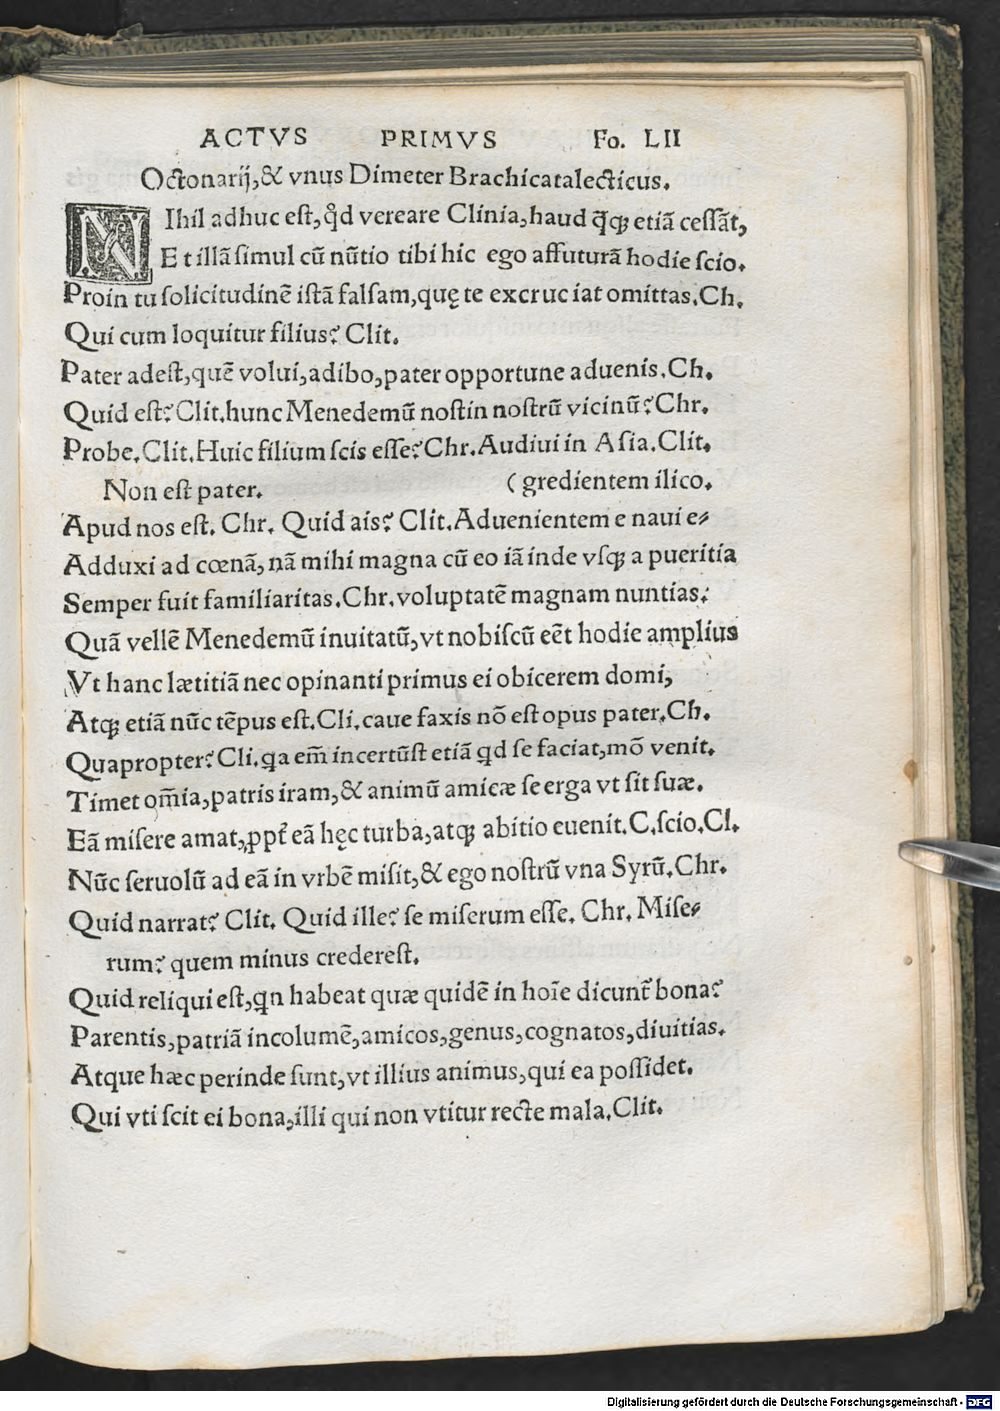 ACTVS PRIMVS Fo. LII
Octonarij,& vnus Dimeter Brachicatalecticus.
NIhil adhuc est, qd̉ vereare Clinia, haud q̄q; etiā cessāt,
Et illā simul cū nūtio tibi hic ego affuturā hodie scio.
Proin tu solicitudinē istā falsam, quę te excruciat omittas. Ch.
Qui cum loquitur filius? Clit.
Pater adest, quē volui, adibo, pater opportune aduenis. Ch.
Quid est? Clit. hunc Menedemū nostin nostrū vicinū? Chr.
Probe. Clit. Huic filium scis esse? Chr. Audiui in Asia. Clit.
Non est pater. (gredientem ilico.
Apud nos est. Chr. Quid ais? Clit. Aduenientem e naui e⸗
Adduxi ad cœnā, nā mihi magna cū eo iā inde vsq; a pueritia
Semper fuit familiaritas. Chr. voluptatē magnam nuntias:
Quā vellē Menedemū inuitatū, vt nobiscū eēt hodie amplius
Vt hanc lætitiā nec opinanti primus ei obicerem domi,
Atq; etiā nūc tēpus est. Cli. caue faxis nō est opus pater. Ch.
Quapropter? Cli. qa em̄ incertūst etiā qd se faciat, mō venit.
Timet om̄ia, patris iram, & animū amicæ se erga vt sit suæ.
Eā misere amat, ꝓpt̄ eā hęc turba, atq; abitio euenit. C. scio. Cl.
Nūc seruolū ad eā in vrbē misit, & ego nostrū vna Syrū. Chr.
Quid narrat? Clit. Quid ille? se miserum esse. Chr. Mise⸗
rum? quem minus crederest.
Quid reliqui est, qn habeat quæ quidē in hoīe dicunt̄ bona?
Parentis, patriā incolumē, amicos, genus, cognatos, diuitias.
Atque hæc perinde sunt, vt illius animus, qui ea possidet.
Qui vti scit ei bona, illi qui non vtitur recte mala. Clit.
Digitalisierung gefördert durch die Deutsche Forschungsgemeinschaft - DFG